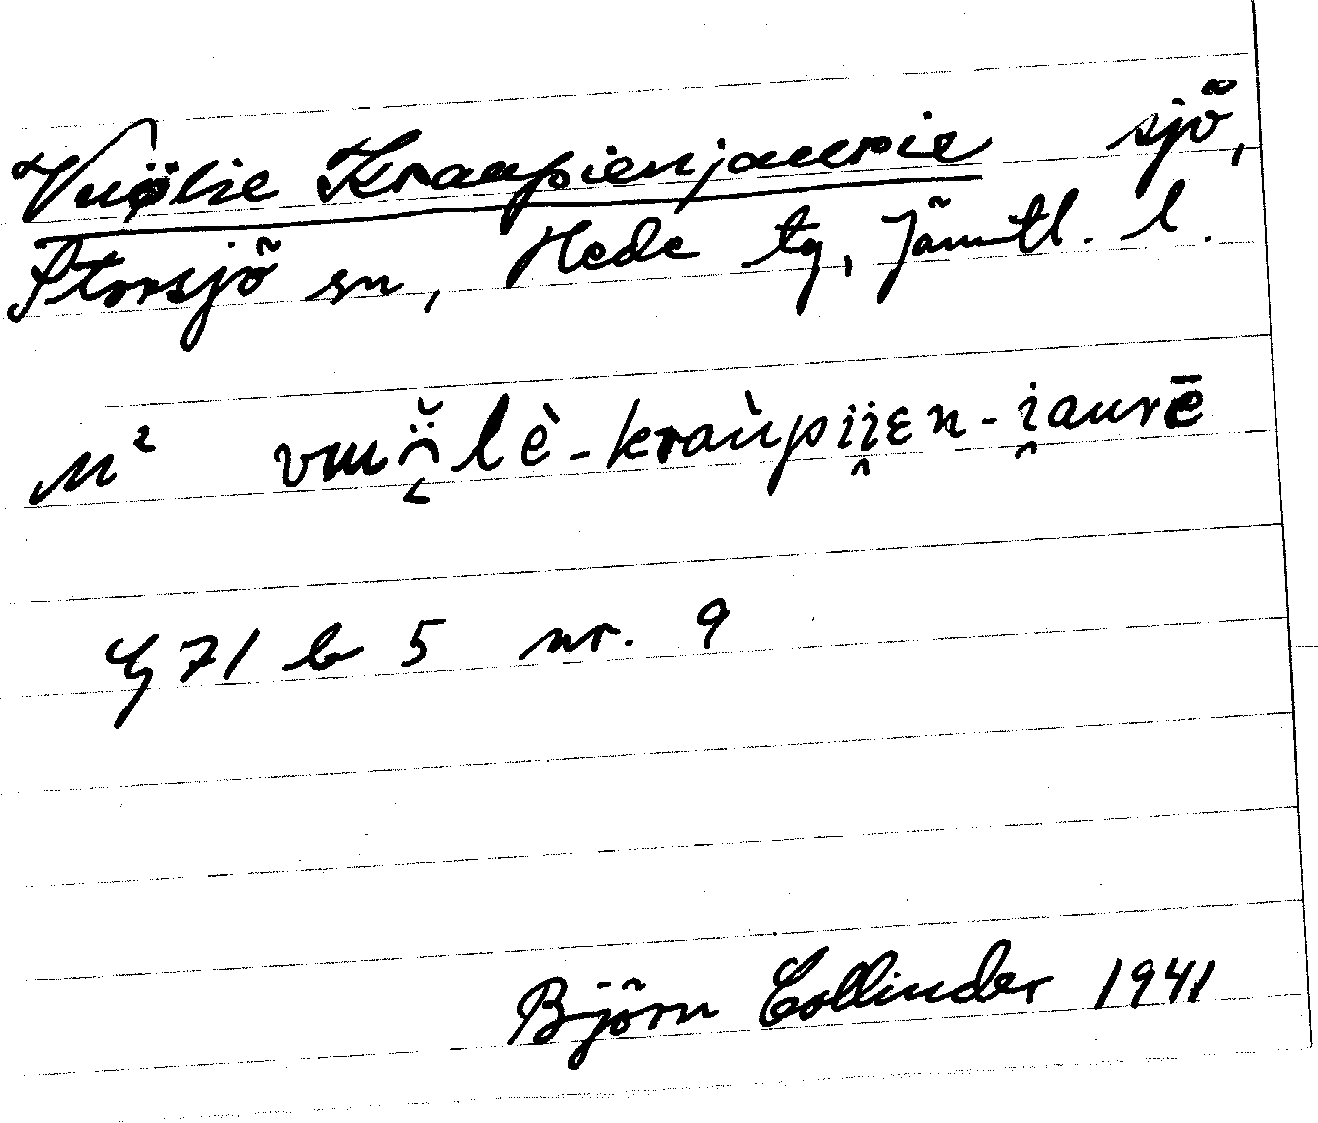 Vuölie Kraapienjaurie sjö,
Storsjö sn, Hede tg, Jämtl. l.
M² vɯö̯̆lè-kraùpii̯ɛn-i̯aurē
G 71 b 5 nr. 9
Björn Collinder 1941